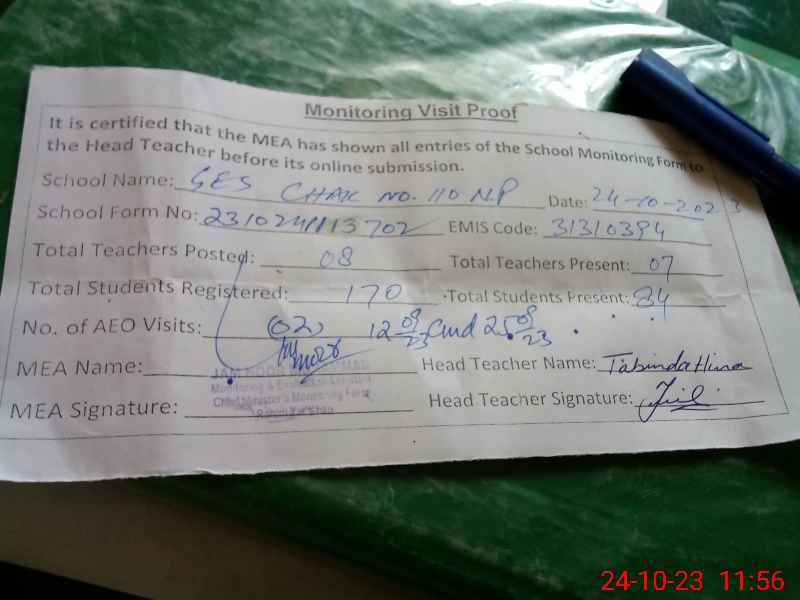 Monitoring Visit Proof
It is certified that the MEA has shown all entries of the School Monitoring Form to
the Head Teacher before its online submission.
School Name: GES CHAK NO. 110 NP Date: 24-10-2023
School Form No: 231024113702 EMIS Code: 31310394
Total Teachers Posted: 08 Total Teachers Present: 07
Total Students Registered: 170 Total Students Present: 84
No. of AEO Visits: (02) 12 09/23 and 25 09/23
MEA Name: Head Teacher Name: Tabinda Hina
Monitoring & Evaluation Assistant
Chief Minister's Monitoring Force
MEA Signature: Head Teacher Signature:
24-10-23 11:56